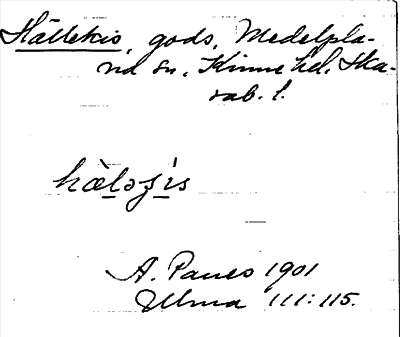 Hällekis, gods, Medelpla-
na sn, Kinne hd. Ska-
rab. l.
hàləʒìs
A. Paues 1901
Ulma 111:115.